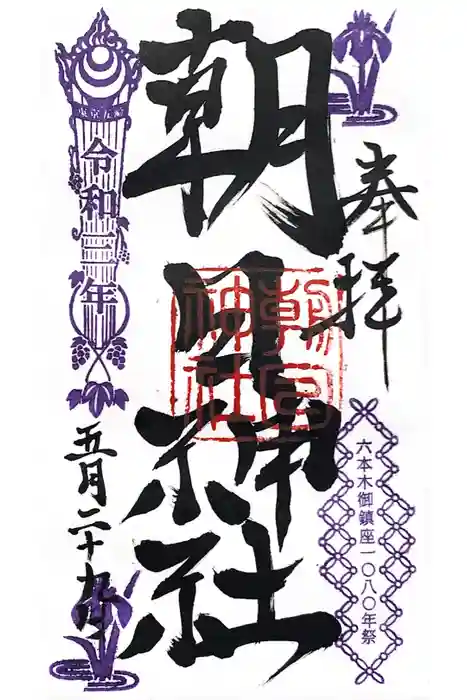 奉拝
六本木御鎮座一〇八〇年祭
朝日神社
朝日神社
令和三年
五月二十九日